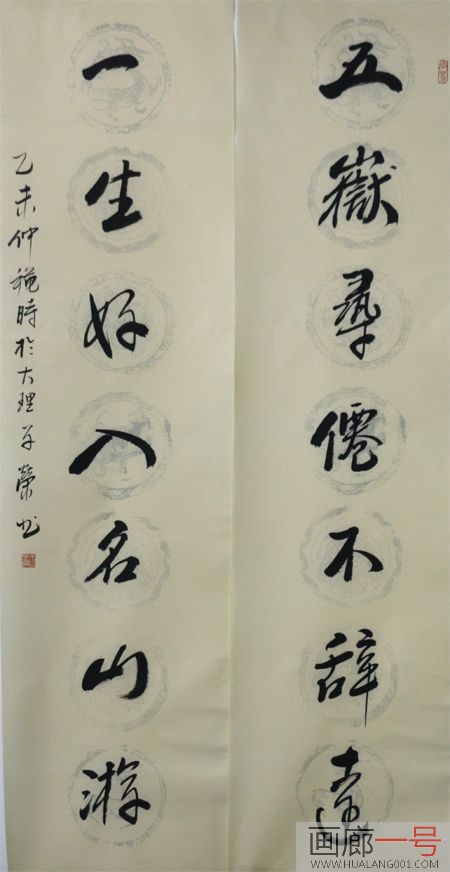 五嶽尋僊不辞遠
一生好入名山游
乙未仲穐時於大理子榮书
画廊一号
WWW.HUALANG001.COM